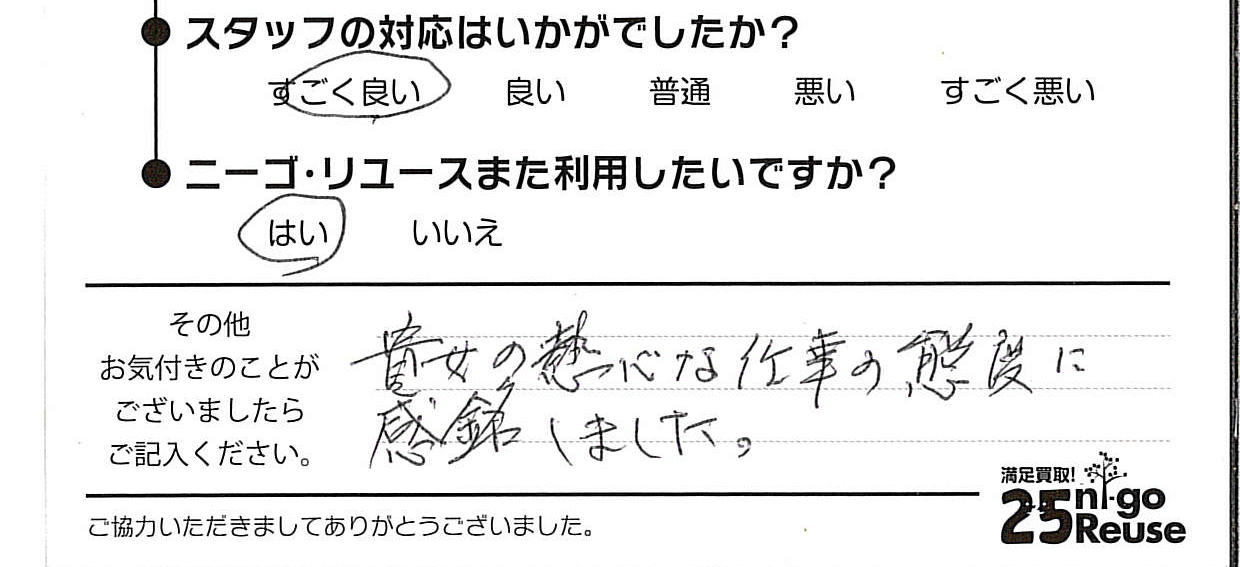 スタッフの対応はいかがでしたか?
すごく良い 良い 普通 悪い すごく悪い
ニーゴ・リユースまた利用したいですか?
はい いいえ
その他
お気付きのことが
ございましたら
ご記入ください。
貴女の熱心な仕事の態度に
感銘しました。
満足買取!
25 ni-go
Reuse
ご協力いただきましてありがとうございました。